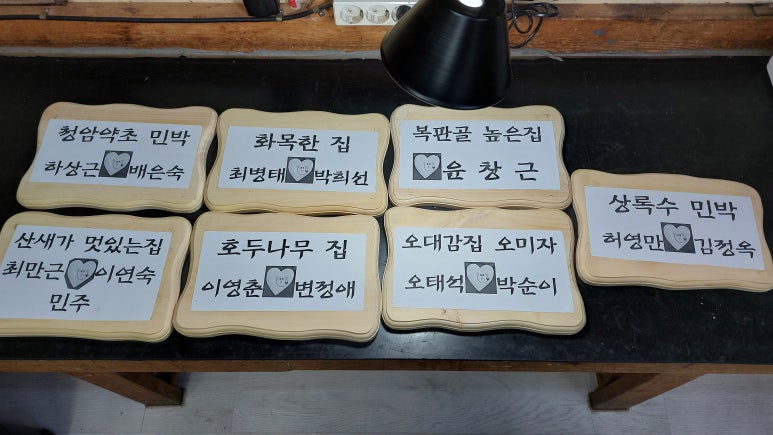 청암약초 민박
하상근 배은숙
화목한 집
최병태 박희선
복판골 높은집
윤창근
상록수 민박
허영만 김정옥
산새가 멋있는집
최만근 이연숙
민주
호두나무 집
이영춘 변정애
오대감집 오미자
오태석 박순이